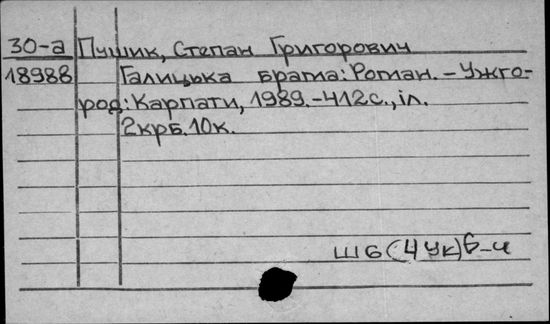 30-а Пушик, Степан Григорович
18988 Галицька брама: Роман. – Ужго-
род: Карпати, 1989. – 412 с., іл.
2крб. 10к.
Ш6(4Ук)6-4